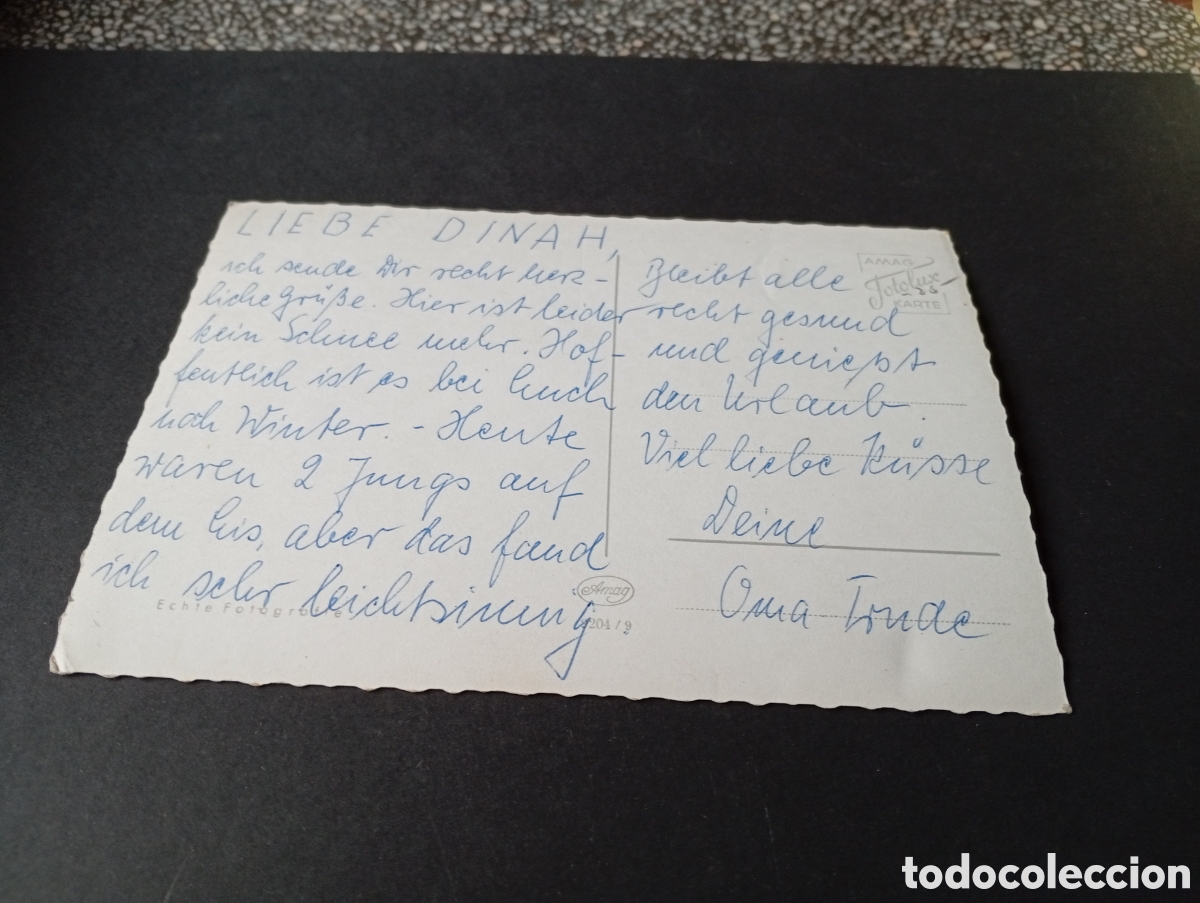 LIEBE DINAH,
ich sende Dir recht herz-
liche Grüße. Hier ist leider
kein Schnee mehr. Hof-
fentlich ist es bei Euch
noch Winter. - Heute
waren 2 Jungs auf
dem Eis, aber das fand
ich sehr leichtsinnig
Echte Fotografie
Bleibt alle
recht gesund
und genießt
den Urlaub.
Viel liebe Küsse
Deine
Oma Trude
AMAG
Fotolux
KARTE
Amag
204/9
todocoleccion